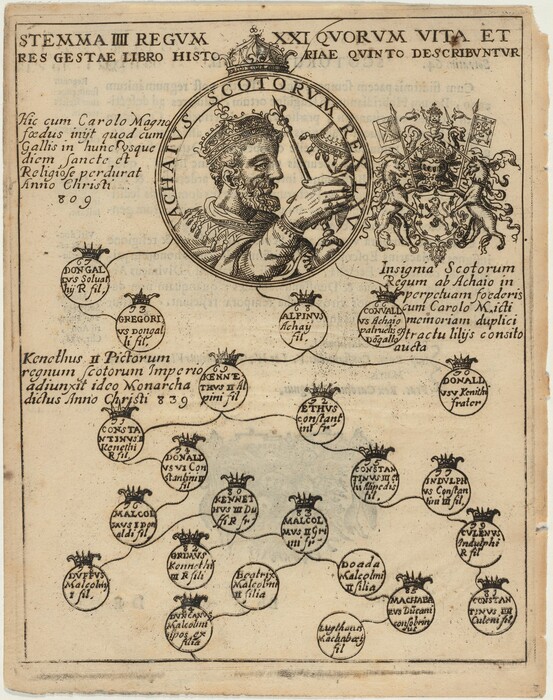 STEMMA IIII REGVM XXI QVORVM VITA ET
RES GESTAE LIBRO HISTO RIAE QVINTO DESCRIBVNTVR
ACHAIVS SCOTORVM REX
Hic cum Carolo Magno
foedus inijt quod cum
Gallis in hunc usque
diem sancte et
Religiose perdurat
Anno Christi
809
Insignia Scotorum
Regum ab Achaio in
perpetuam foederis
cum Carolo M. icti
memoriam duplici
tractu lilijs consito
aucta
DONGAL
LVS Solua
R fil
GREGORI
VS Dongal
li fil
ALPINVS
Achaij
fil
CONVALL
VS Achaio
patruelis
Kenethus II Pictorum
regnum scotorum Imperio
adiunxit ideo Monarcha
dictus Anno Christi 839
KENNE
THVS II Al
pini fil
DONALD
Kenithi
frater
CONSTA
NTINVS II
Kenethi
R fil
ETHVS
constant
ini fr
DONALD
VS VI Con
stantini II
fil
CONSTAN
TINVS III
fil
INDVLPH
VS Constan
tini III fil
MALCOL
MVS I Don
aldi fil
KENNET
HVS III Du
ffi R fr
MALCOL
MVS II Gri
mi fr
CVLENVS
Indulphi
R fil
DVFFVS
Malcolmi
I fil
GRIMVS
Kennethi
III R fili
Beatrix
Malcolmi
II filia
Doada
Malcolmi
II filia
MACHABA
EVS Ducani
consobrin
us
CONSTAN
TINVS IIII
Culeni fil
Malcolmi
nipos ex
filia
Machabaei
fil